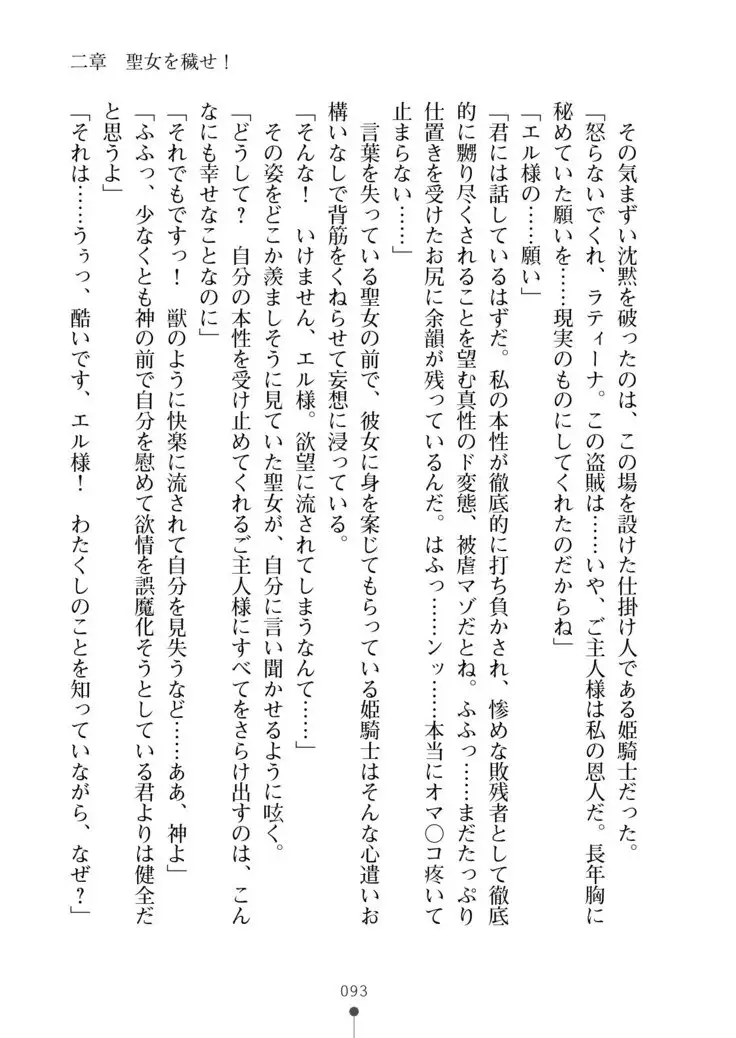 二章　聖女を穢せ！
　その気まずい沈黙を破ったのは、この場を設けた仕掛け人である姫騎士だった。
「怒らないでくれ、ラティーナ。この盗賊は……いや、ご主人様は私の恩人だ。長年胸に
秘めていた願いを……現実のものにしてくれたのだからね」
「エル様の……願い」
「君には話しているはずだ。私の本性が徹底的に打ち負かされ、惨めな敗残者として徹底
的に嬲り尽くされることを望む真性のド変態、被虐マゾだとね。ふふっ……まだたっぷり
仕置きを受けたお尻に余韻が残っているんだ。はふっ……ンッ……本当にオマ〇コ疼いて
止まらない……」
　言葉を失っている聖女の前で、彼女に身を案じてもらっている姫騎士はそんな心遣いお
構いなしで背筋をくねらせて妄想に浸っている。
「そんな！　いけません、エル様。欲望に流されてしまうなんて……」
　その姿をどこか羨ましそうに見ていた聖女が、自分に言い聞かせるように呟く。
「どうして？　自分の本性を受け止めてくれるご主人様にすべてをさらけ出すのは、こん
なにも幸せなことなのに」
「それでもですっ！　獣のように快楽に流されて自分を見失うなど……ああ、神よ」
「ふふっ、少なくとも神の前で自分を慰めて欲情を誤魔化そうとしている君よりは健全だ
と思うよ」
「それは……うぅっ、酷いです、エル様！　わたくしのことを知っていながら、なぜ？」
093